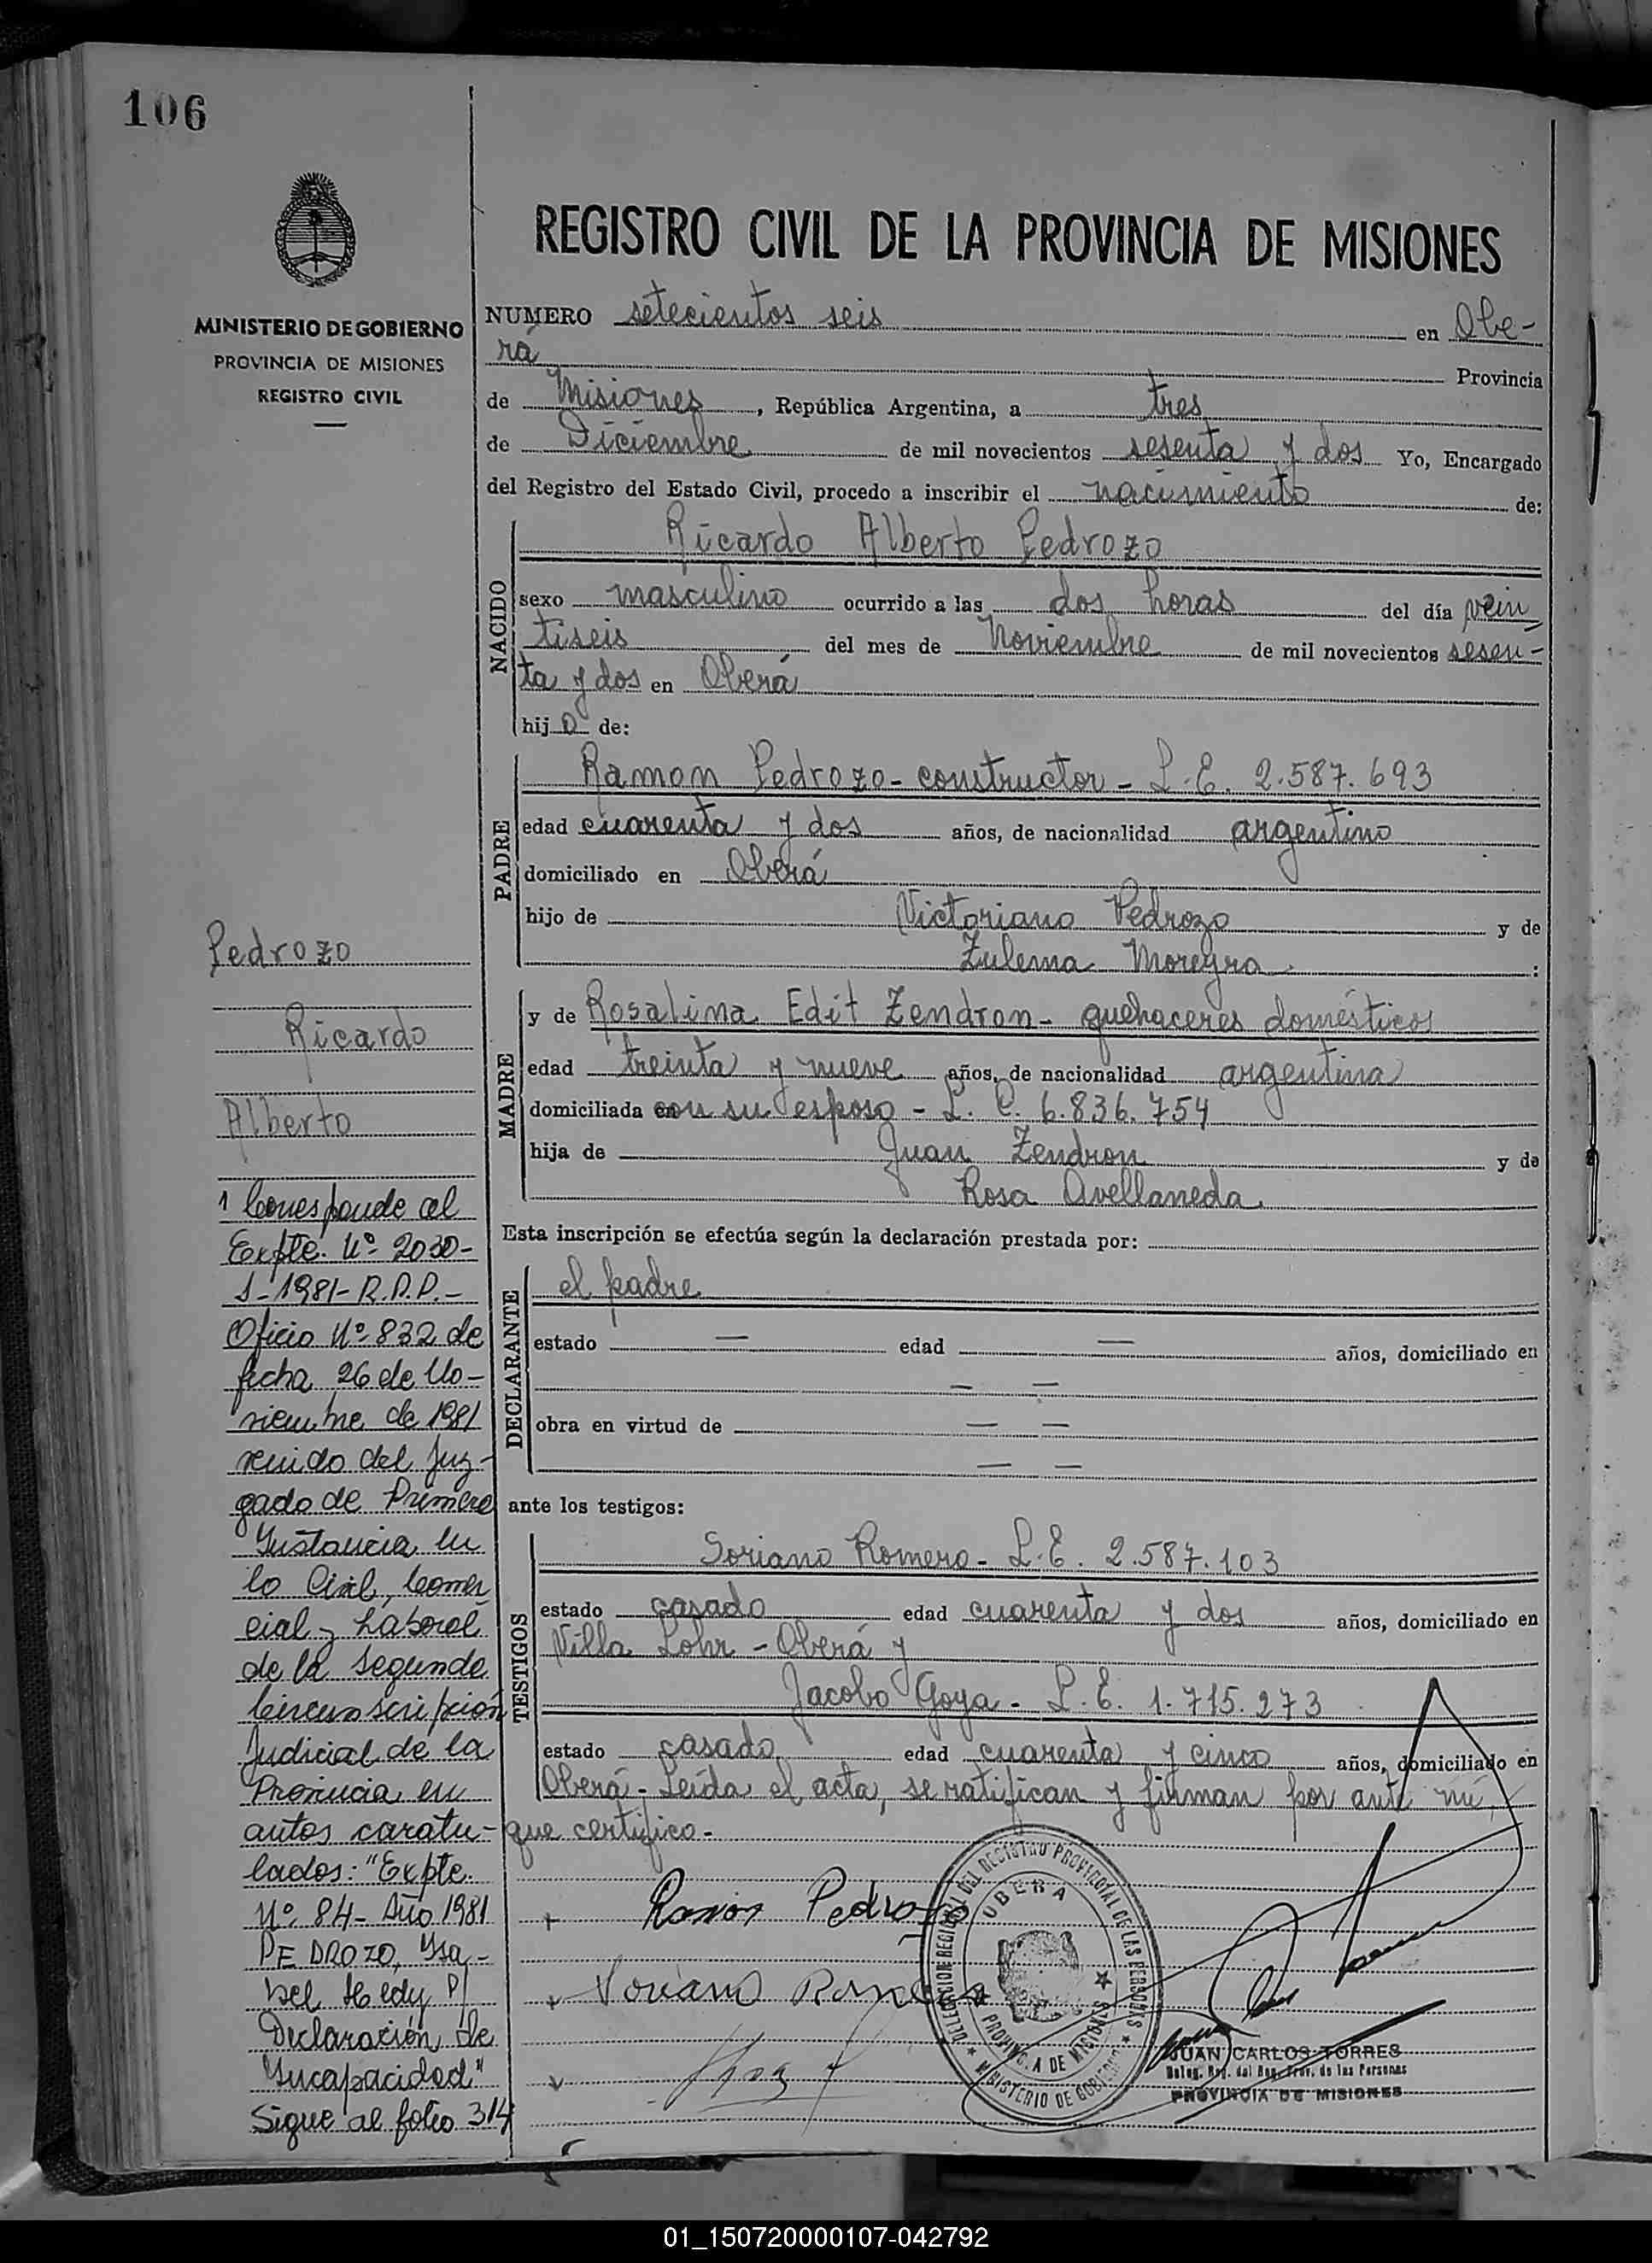 106
REGISTRO CIVIL DE LA PROVINCIA DE MISIONES
MINISTERIO DE GOBIERNO
PROVINCIA DE MISIONES
REGISTRO CIVIL
NUMERO setecientos seis en Obe-
rá Provincia
de Misiones, República Argentina, a tres
de Diciembre de mil novecientos sesenta y dos Yo, Encargado
del Registro del Estado Civil, procedo a inscribir el nacimiento de:
NACIDO
Ricardo Alberto Pedrozo
sexo masculino ocurrido a las dos horas del día vein
tiseis del mes de Noviembre de mil novecientos sesen-
ta y dos en Oberá
hijo de:
PADRE
Ramon Pedrozo - constructor - L.E. 2.587.693
edad cuarenta y dos años, de nacionalidad argentino
domiciliado en Oberá
hijo de Victoriano Pedrozo y de
Zulema Moreyra :
MADRE
y de Rosalina Edit Zendron - quehaceres domésticos
edad treinta y nueve años, de nacionalidad argentina
domiciliada con su esposo - L. C. 6.836.754
hija de Juan Zendron y de
Rosa Avellaneda
Esta inscripción se efectúa según la declaración prestada por:
DECLARANTE
el padre
estado — edad — años, domiciliado en
— —
obra en virtud de — —
— —
ante los testigos:
TESTIGOS
Soriano Romero - L.E. 2.587.103
estado casado edad cuarenta y dos años, domiciliado en
Villa Lohr - Oberá y
Jacobo Goya - L.E. 1.715.273
estado casado edad cuarenta y cinco años, domiciliado en
Oberá - Leída el acta, se ratifican y firman por ante mí,
que certifico.-
Ramón Pedrozo
DELEGACION REGIONAL DEL REGISTRO PROVINCIAL DE LAS PERSONAS
OBERA
PROVINCIA DE MISIONES
MINISTERIO DE GOBIERNO
JUAN CARLOS TORRES
Deleg. Reg. del Reg. Prov. de las Personas
PROVINCIA DE MISIONES
Pedrozo
Ricardo
Alberto
1 Corresponde al
Expte. Nº 2030-
J-1981-R.P.P.-
Oficio Nº 832 de
fecha 26 de No-
viembre de 1981
venido del Juz-
gado de Primera
Instancia en
lo Civil, Comer
cial y Laboral
de la segunda
Circunscripción
Judicial de la
Provincia en
autos caratu-
lados: "Expte.
Nº 84 - Año 1981
PEDROZO, Isa-
bel Heldy P/
Declaración de
Incapacidad"
Sigue al folio 314
01_150720000107-042792